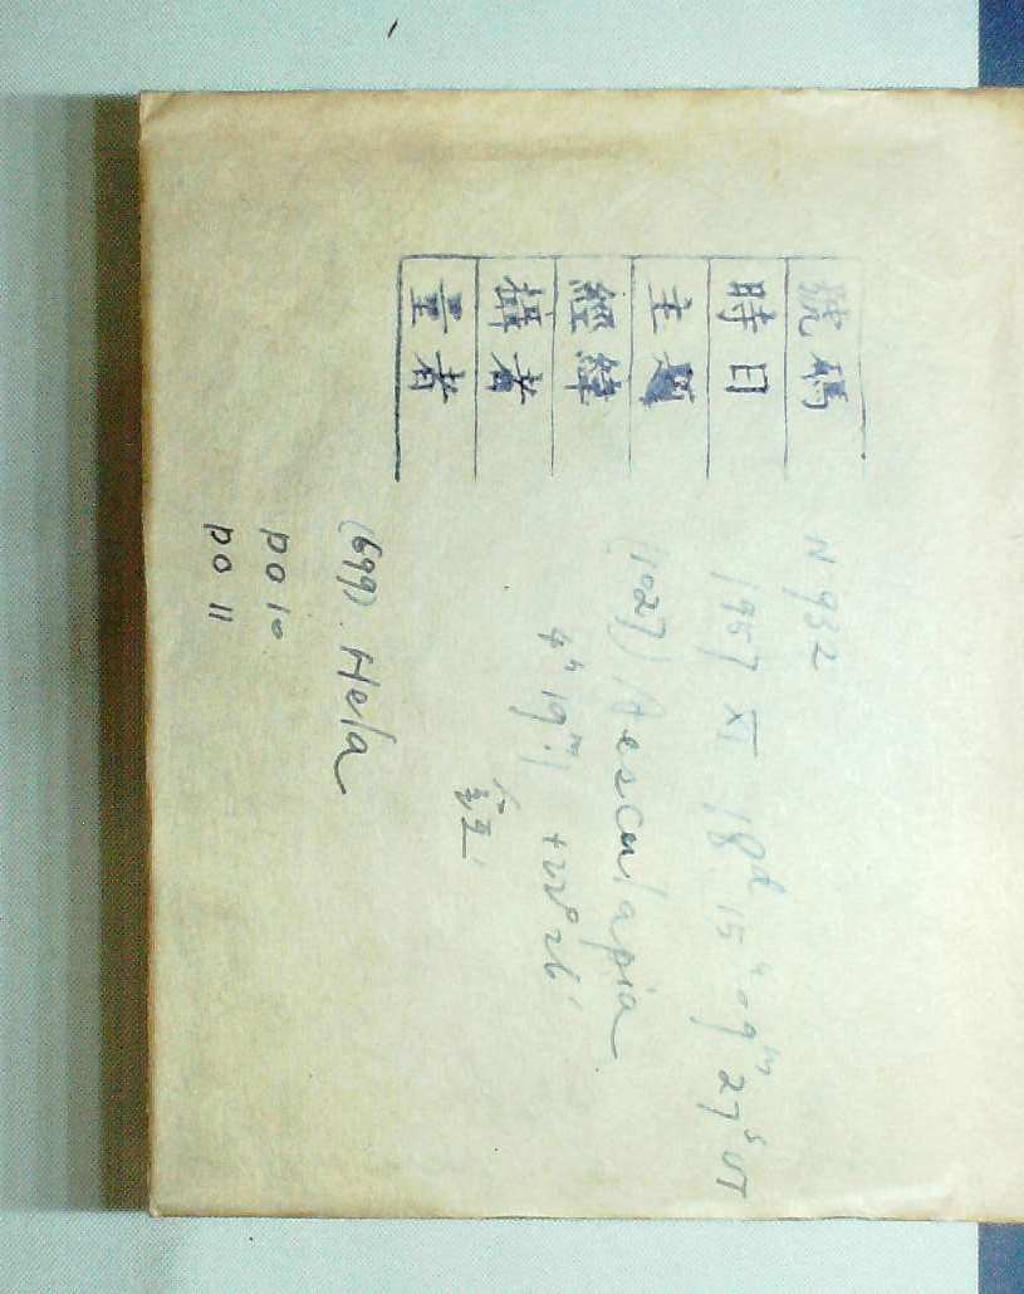 號碼 N 932
時日 1957 XI 18d 15h 09m 27s UT
主題 (1027) Aescularpia
經緯 4h 19m.1 +22° 26'
攝者
量者
(699) Hela
PO 10
PO 11